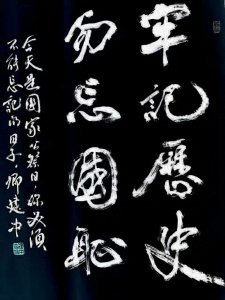 牢記歷史
勿忘國恥
今天是國家公祭日，你必須
不能忘記的日子。卿建中